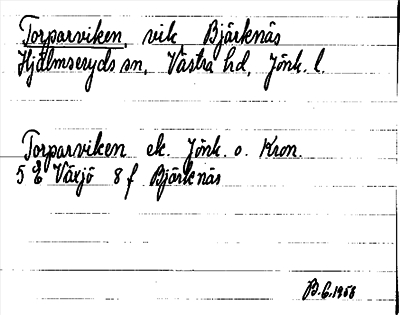 Torparviken, vik Bjärknäs
Hjälmseryds sn, Västra hd, Jönk. l.
Torparviken ek. Jönk. o. Kron.
5 E Växjö 8 f Bjärknäs
B.G.1958